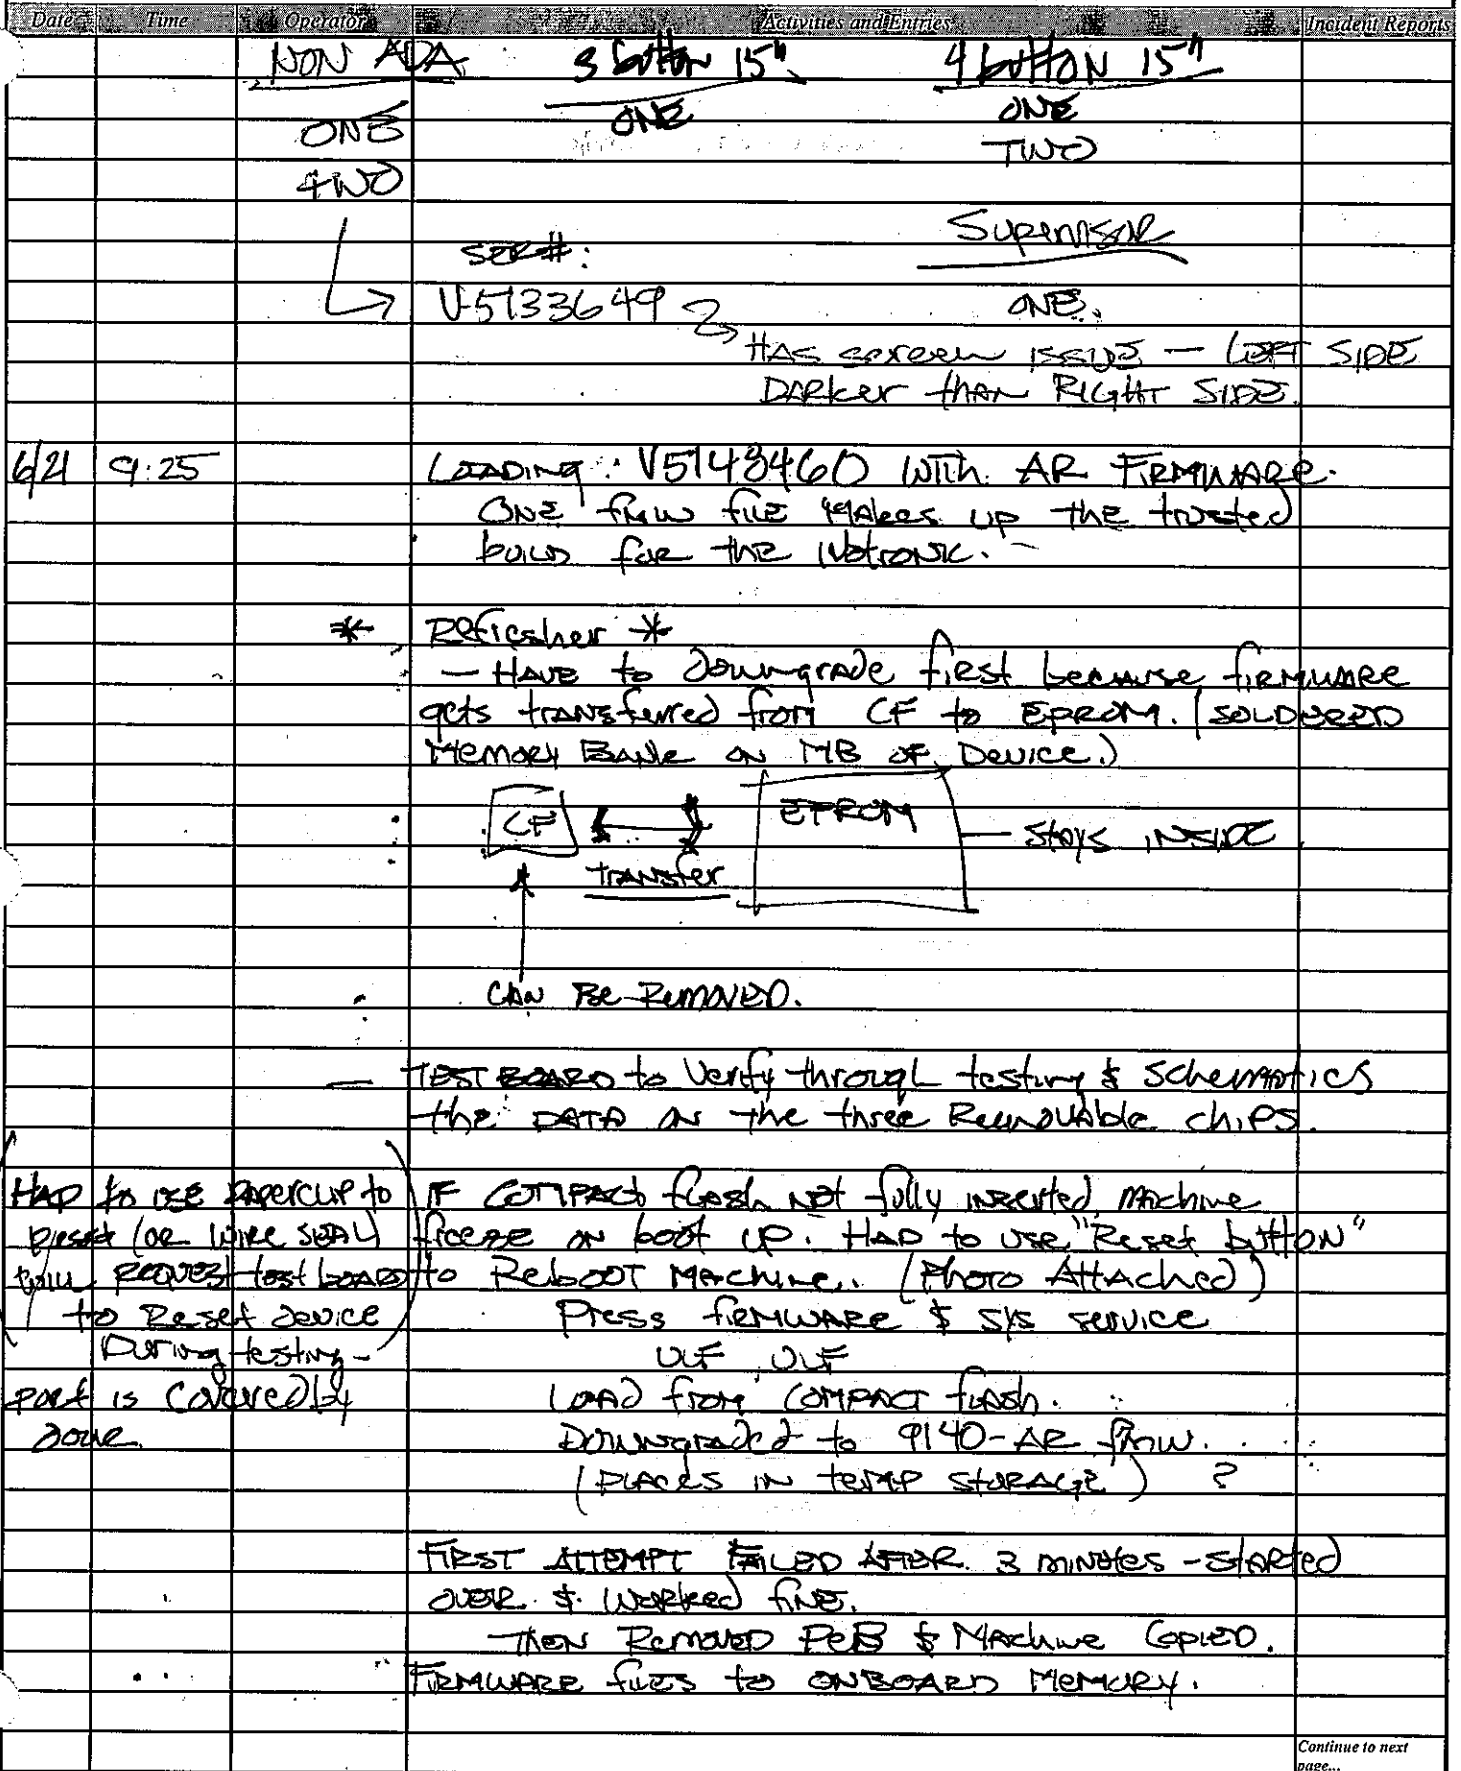 Date Time Operator Activities and Entries Incident Reports
NON ADA 3 button 15" 4 button 15"
ONE ONE ONE
TWO TWO
Supervisor
SER#:
V5133649 ONE.
HAS screen ISSUE — LEFT SIDE
DARKer thAN RIGHT SIDE.
6/21 9:25 LOADING: V5143460 WITH AR FIRMWARE.
ONE fmw fiLE MAkes up the trusted
build for the IVotronic.
* Refresher *
— HAVE to Downgrade first because firmware
gets transferred from CF to EPROM. (SOLDERED
Memory Bank on MB of Device.)
CF EPROM — Stays INSIDE
transfer
CAN Be Removed.
— TEST BOARD to Verify through testing & schematics
the DATA on the three Removable chips.
IF COMPACT flash not fully inserted, machine
freeze on boot up. HAD to use "Reset button"
to Reboot Machine. (Photo Attached)
HAD to use paperclip to
reset (or wire seal)
will request test board
to Reset device
During testing -
port is covered by
Press firmware & sys service
VLF, VLF
Load from compact flash.
Downgraded to 9140-AR fmw.
(PLACES IN temp STORAGE) ?
FIRST ATTEMPT FAILED AFTER 3 minutes - started
over & worked fine.
— Then Removed PEB & Machine Copied
FIRMWARE files to ONBOARD MEMORY.
Continue to next
page...